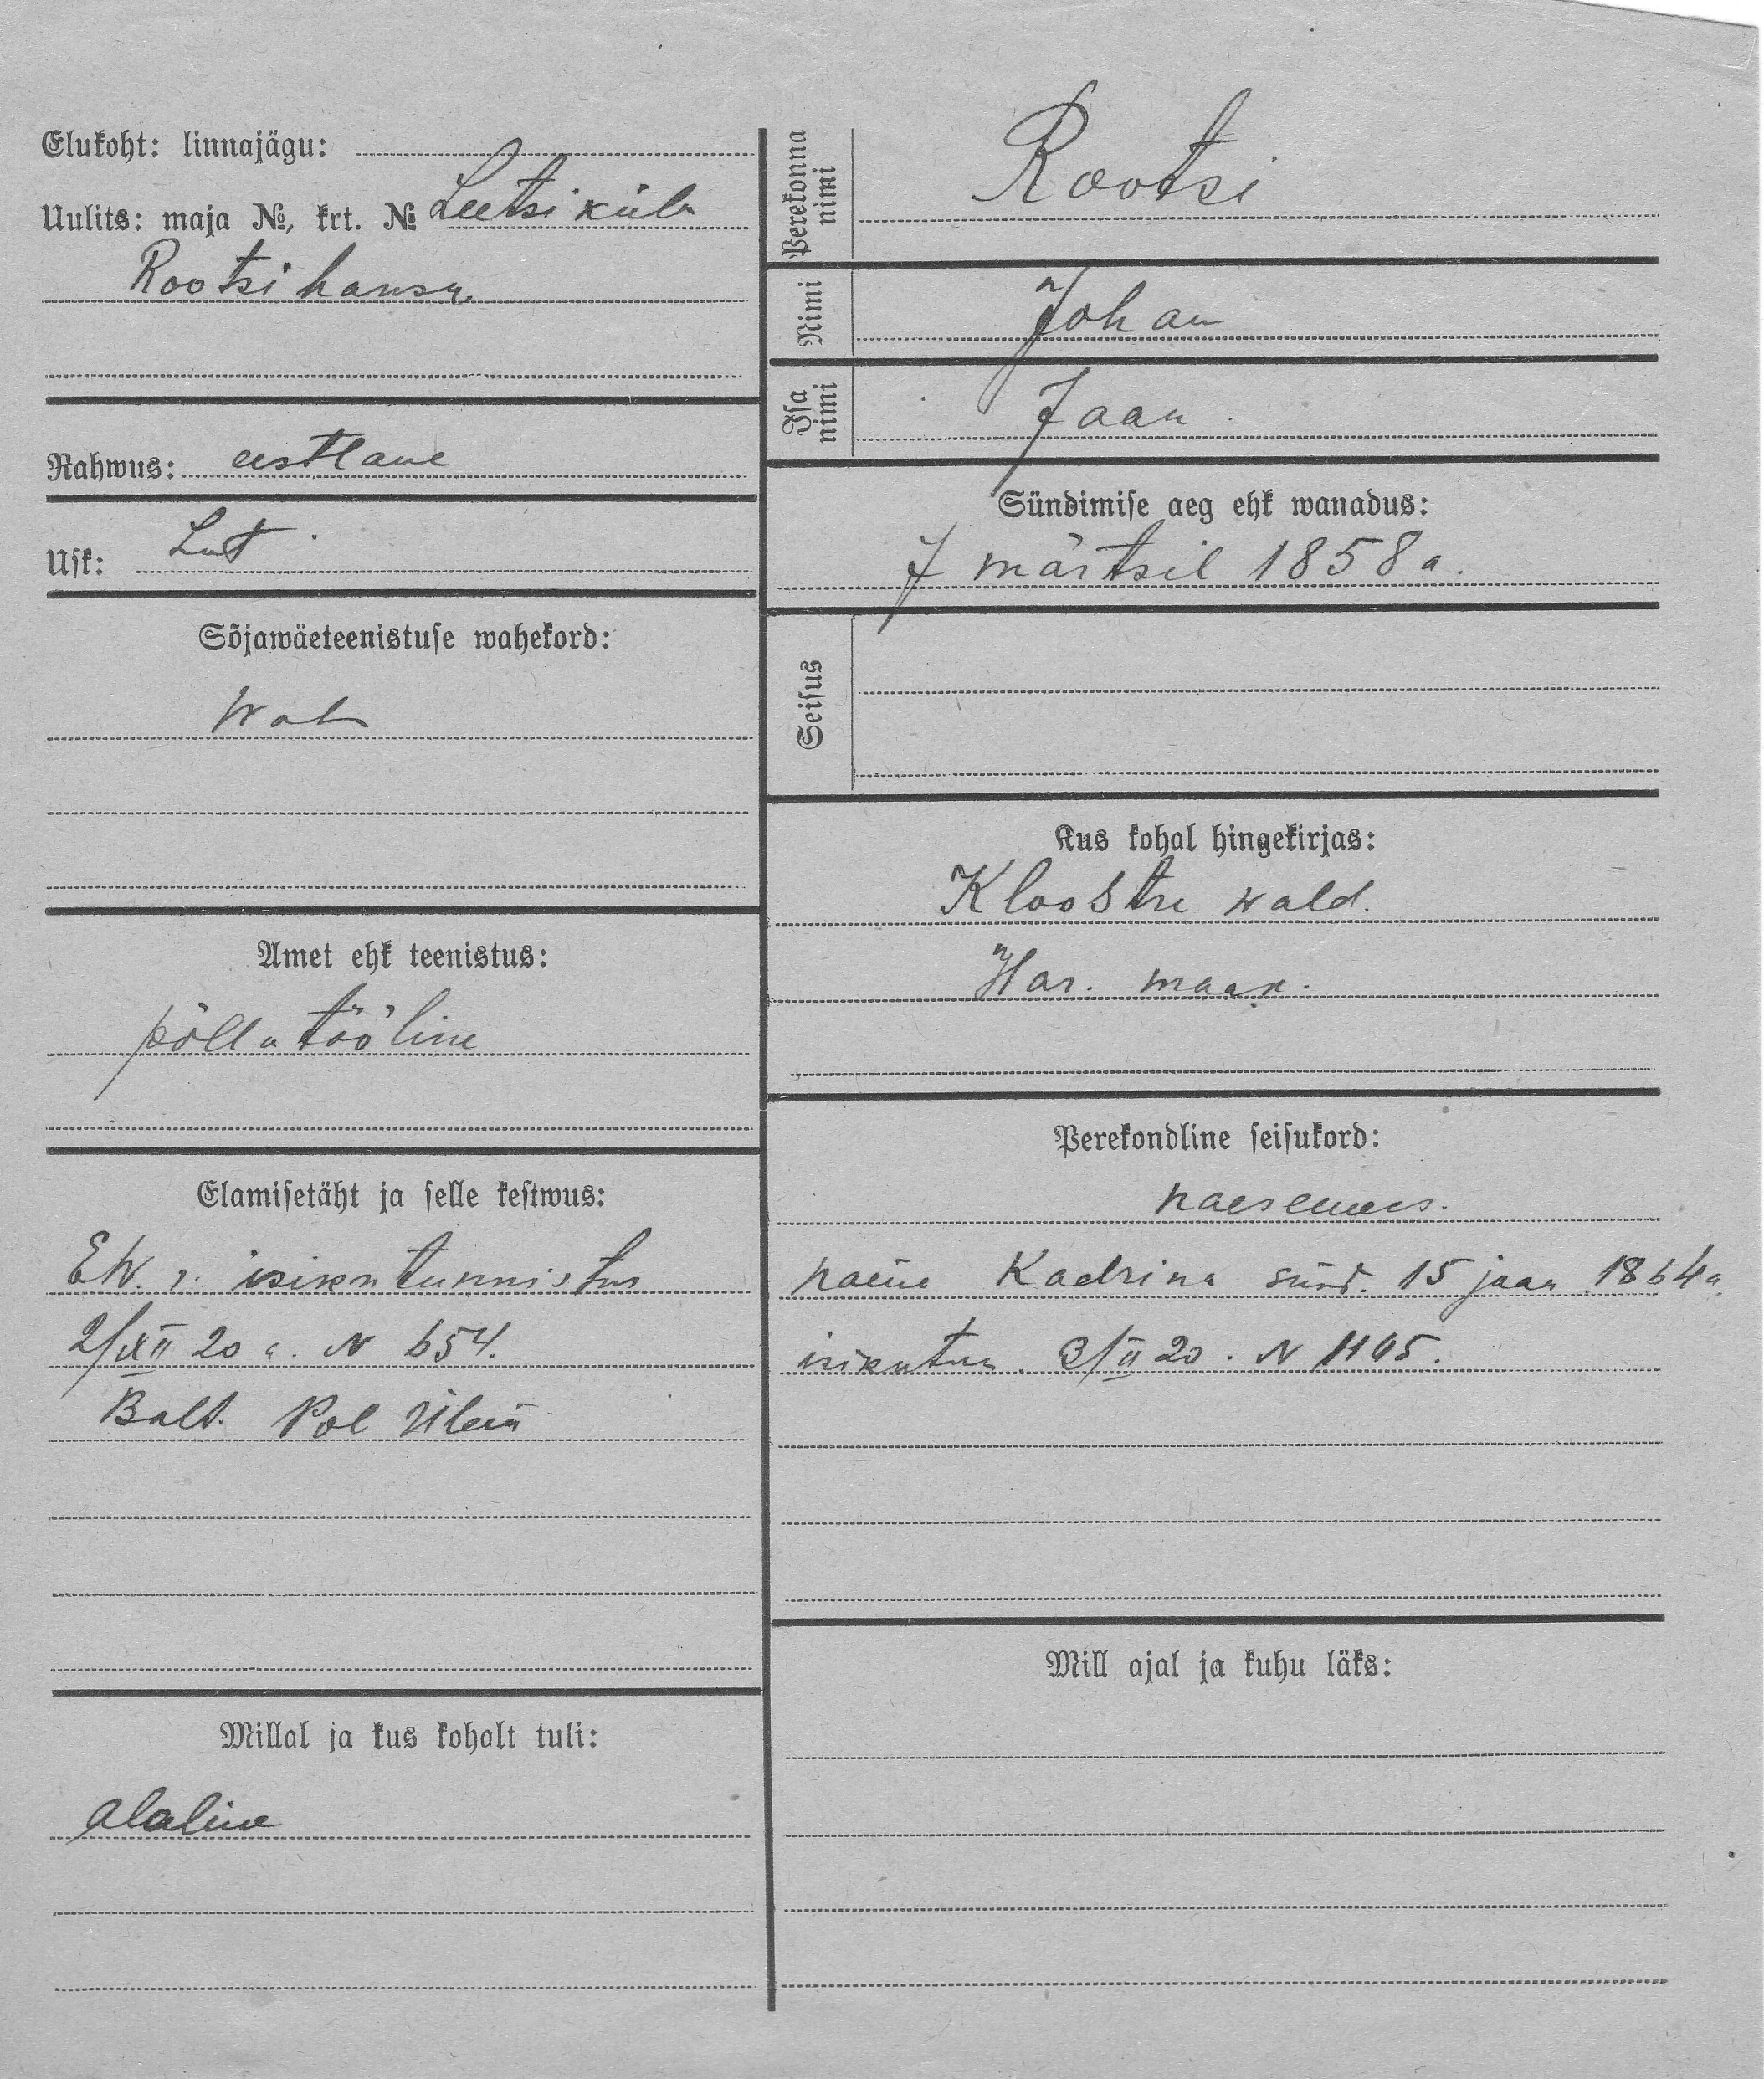 Elukoht: linnajägu:
Uulits: maja №, krt. № Leetsi küla
Rootsi hansu
Rahwus: eestlane
Usk: Lut
Sõjawäeteenistuse wahekord:
Wab
Amet ehk teenistus:
põllutööline
Elamisetäht ja selle kestwus:
EW. r. isikutunnistus
2/XII 20 a. N 654.
Balt. Pol Ülem
Millal ja kus kohalt tuli:
alaline
Perekonna nimi
Rootsi
Nimi
Johan
Isa nimi
Jaan
Sündimise aeg ehk wanadus:
7 märtsil 1858 a.
Seisus
Kus kohal hingekirjas:
Kloostre wald.
Har. maak.
Perekondline seisukord:
naesemees.
naene Kadrina sünd. 15 jaan 1864 a
isikutun. 3/II 20. N 1105.
Mill ajal ja kuhu läks: